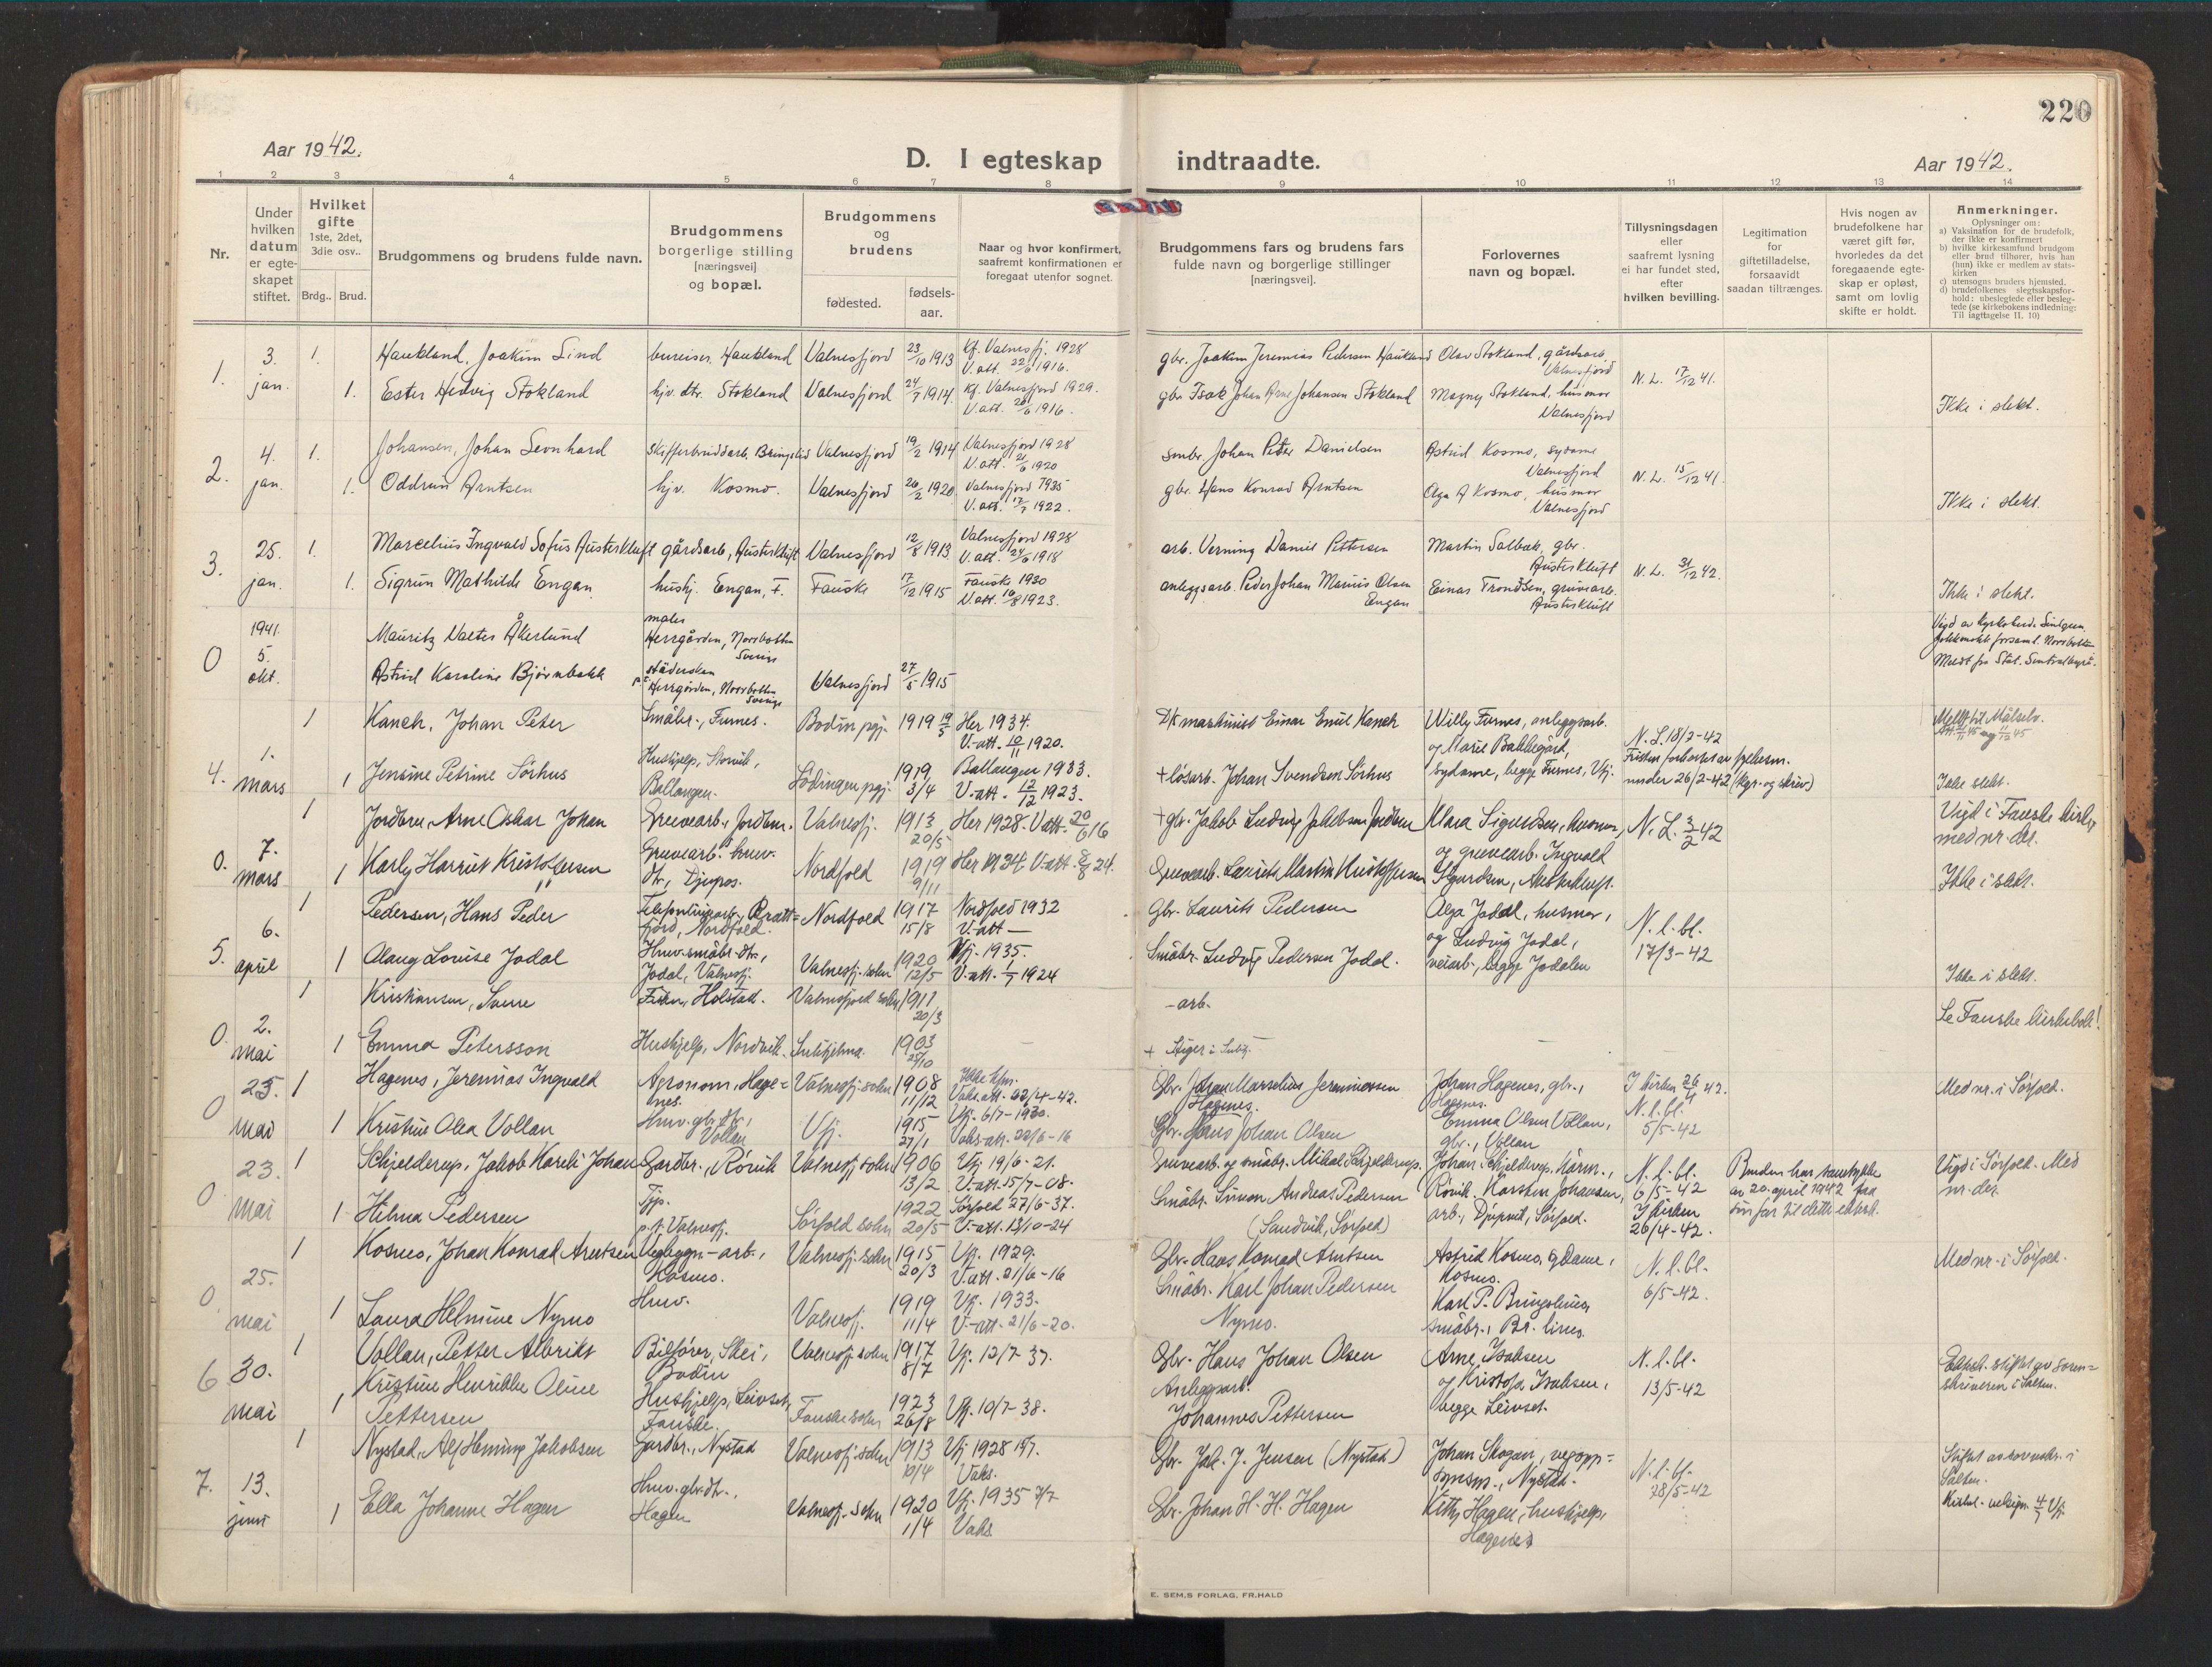 220
Aar 1942.
D. I egteskap indtraadte.
Aar 1942.
1 2 3 4 5 6 7 8 9 10 11 12 13 14
Nr.
Under hvilken datum er egteskapet stiftet.
Hvilket gifte
1ste, 2det, 3die osv..
Brdg.. Brud.
Brudgommens og brudens fulde navn.
Brudgommens borgerlige stilling [næringsvei] og bopæl.
Brudgommens og brudens
fødested.
fødsels-aar.
Naar og hvor konfirmert, saafremt konfirmationen er foregaat utenfor sognet.
Brudgommens fars og brudens fars fulde navn og borgerlige stillinger [næringsvei].
Forlovernes navn og bopæl.
Tillysningsdagen eller saafremt lysning ei har fundet sted, efter hvilken bevilling.
Legitimation for giftetilladelse, forsaavidt saadan tiltrænges.
Hvis nogen av brudefolkene har været gift før, hvorledes da det foregaaende egteskap er opløst, samt om lovlig skifte er holdt.
Anmerkninger.
Oplysninger om:
a) Vaksination for de brudefolk, der ikke er konfirmert
b) hvilke kirkesamfund brudgom eller brud tilhører, hvis han (hun) ikke er medlem av statskirken
c) utensogns bruders hjemsted.
d) brudefolkenes slegtsskapsforhold: ubeslegtede eller beslegtede (se kirkebokens indledning: Til iagttagelse II. 10)
1. 3. jan. 1. Haukland, Joakim Lind bureiser. Haukland Valnesfjord 23/10 1913 Kf. Valnesfj. 1928 V.att. 22/6 1916. gbr. Joakim Jeremias Pedersen Haukland Olav Stokland, gårdsarb. Valnesfjord N.L. 17/12 41.
1. Ester Hedvig Stokland hjv. dtr. Stokland Valnesfjord 24/7 1914. Kf. Valnesfjord 1929. V.att. 1916. gbr Isak Johan Arne Johansen Stokland Magny Stokland, husmor Valnesfjord Ikke i slekt.
2. 4. jan. 1. Johansen, Johan Leonhard Skifferbruddarb. Valnesfjord 19/2 1914 Valnesfjord 1928 V.att. 21/6 1920 smbr. Johan Peter Danielsen Astrid Kosmo, sydame Valnesfjord N.L. 15/12 41.
1. Oddrun Arntsen hjv. Kosmo. Valnesfjord 26/2 1920 Valnesfjord 1935 V.att. 17/7 1922. gbr. Hans Konrad Arntsen Olga A Kosmo, husmor Valnesfjord Ikke i slekt.
3. 25. jan. 1. Marcelius Ingvald Sofus Austerkluft gårdsarb, Austerkluft Valnesfjord 12/8 1913 Valnesfjord 1928 V.att. 24/6 1918 arb. Verning Daniel Pettersen Martin Salbak, gbr. Austerkluft N.L. 31/12 42.
1. Sigrun Mathilde Engan. hushj. Engan, F. Fauske 17/12 1915 Fauske 1930 V.att. 10/8 1923. anleggsarb. Peder Johan Marius Olsen Engan Einar Trondsen, gruvearb. Austerkluft Ikke i slekt.
0 1941. 5. okt. Mauritz Valter Åkerlund maler Herrgården, Norrbotten Sverige Vigd av forsaml. Norrbotten
Astrid Karoline Bjørnbakk städerskan Herrgården, Norrbotten Sverige Valnesfjord 27/5 1915 Meldt fra Stat. Sentralbyrå.
4. 1. mars 1 Kanch, Johan Peter Småbr., Furnes. Bodin pgj. 1919 19/5 Her 1934. V.-att. 10/11 1920. D/s maskinist Einar Emil Kanch Willy Furnes, anleggsarb. og Marie Bakkegård, sydame, begge Furnes, Vfj. N.L. 18/2-42 Meldt til Målselv.
1 Jensine Petrine Sørhus Hushjelp, Ballangen. Lødingen pgj. 1919 3/4 Ballangen 1933. V.-att. 12/12 1923. + løsarb. Johan Svendsen Sørhus Fristen forkortet av fylkesm. under 26/2-42 Ikke slekt.
0. 7. mars 1 Jordbru, Arne Oskar Johan Gruvearb., Jordbru. Valnesfj. 1913 20/5 Her 1928. V.att. 20/6 16 + gbr. Jakob Ludvig Jakobsen Jordbru Klara Sigurdsen, husmor, N.L. 3/2 42 Vigd i Fauske kirke med nr. der.
1 Karly Harriet Kristoffersen Gruvearb. hmv. dtr., Djupos. Nordfold 1919 9/11 Her 1934. V-att. 24. Gruvearb. Laurits Martin Kristoffersen og gruvearb. Ingvald Sigurdsen, Austerkluft. Ikke i slekt.
5. 6. april 1 Pedersen, Hans Peder fjord, Nordfold. Nordfold 1917 15/8 Nordfold 1932 V.-att — Gbr. Laurits Pedersen Olga Jodal, husmor, og Ludvig Jodal, veiarb., begge Jodalen N.l.bl. 17/3-42
1 Olaug Louise Jodal Hmv. småbr. dtr., Jodal, Valnesfj. Valnesfj. sokn 1920 12/5 Vfj. 1935. V.-att. 1/7 1924 Småbr. Ludvig Pedersen Jodal. Ikke i slekt.
0. 2. mai 1 Kristiansen, Sverre Holstad. Valnesfjord sokn 1911 20/3 — arb. Se Fauske kirkebok!
1 Emma Petersson Hushjelp, Nordvik. Sulitjelma. 1903 25/10 + Stiger i Sulitj.
0 25. mai 1 Hagenes, Jeremias Ingvald Agronom, Hagenes. Valnesfj. sokn 1908 11/12 Ikke kfm. Vaks.att. 22/4-42. Gbr. Johan Marselius Jeremiassen Hagenes. Johan Hagenes, gbr., Hagenes. I kirken 26/4 42. N.l.bl. 5/5-42 Med nr. i Sørfold.
1 Kristine Olea Vollan Hmv. gbr. dtr., Vollan Vfj. 1915 27/1 Vfj. 6/7-1930. Vaks.-att. 22/6-16 Gbr. Hans Johan Olsen Emma Olsen Vollan, gbr., Vollan
0 23. mai 1 Schjelderup, Jakob Kareli Johan Gardbr., Røvik Valnesfj. sokn 1906 13/2 Vfj 19/6-21. V.-att. 15/7-08. Gruvearb. og småbr. Mikal Schjelderup. Johan Schjelderup. Røvik. Karsten Johansen, arb., Djupvik, Sørfold. N.l.bl. 6/5-42 I kirken 26/4-42. Bruden har samtykke av 20. april 1942 fra sin far til dette ektesk. Vigd i Sørfold. Med nr. der.
1 Hilma Pedersen Tjp. p.t. Valnesfj. Sørfold sokn 1922 20/5 Sørfold 27/6-37. V.-att. 13/10-24 Småbr. Simon Andreas Pedersen (Sandvik, Sørfold)
0. 25. mai 1 Kosmo, Johan Konrad Arntsen Vegbygn-arb., Kosmo. Valnesfj. sokn 1915 20/3 Vfj. 1929. V.att. 21/6-16 Gbr. Hans Konrad Arntsen Astrid Kosmo, sydame, Kosmo. N.l.bl. 6/5-42. Med nr. i Sørfold.
1 Laura Helmine Nymo Hmv. Valnesfj. 1919 11/4 Vfj. 1933. V.-att. 21/6-20. Småbr. Karl Johan Pedersen Nymo. Karl P. Bringslimo, småbr., Br. limo.
6 30. mai 1 Vollan, Petter Albrikt Bilfører, Skei, Bodin Valnesfj. sokn 1917 8/7 Vfj. 12/7 37. Gbr. Hans Johan Olsen Arne Isaksen og Kristofa Isaksen, begge Leivset. N.l.bl. 13/5-42 Ektesk. stiftet av sorenskriveren i Salten.
1 Kristine Henrikke Oline Pettersen Hushjelp, Leivset, Fauske. Fauske sokn 1923 26/8 Vfj. 10/7-38. Anleggsarb. Johannes Pettersen
7. 13. juni 1 Nystad, Alf Heming Jakobsen Gardbr., Nystad Valnesfj. sokn 1913 19/4 Vfj 1928 Vaks. Gbr. Jak. J. Jensen (Nystad) Johan Skogan, vegoppsynsm., Nystad. N.l.bl. 28/5-42 Stiftet av sorenskr. i Salten.
1 Ella Johanne Hagen Hmv. gbr. dtr., Hagen Valnesfj. sokn 1920 1/4 Vfj. 1935 7/7 Vaks Gbr. Johan H. H. Hagen Kitty Hagen, hushjelp, Hagenes Kirkel. velsign. 4/7 Vfj.
E. SEM,S FORLAG, FR.HALD